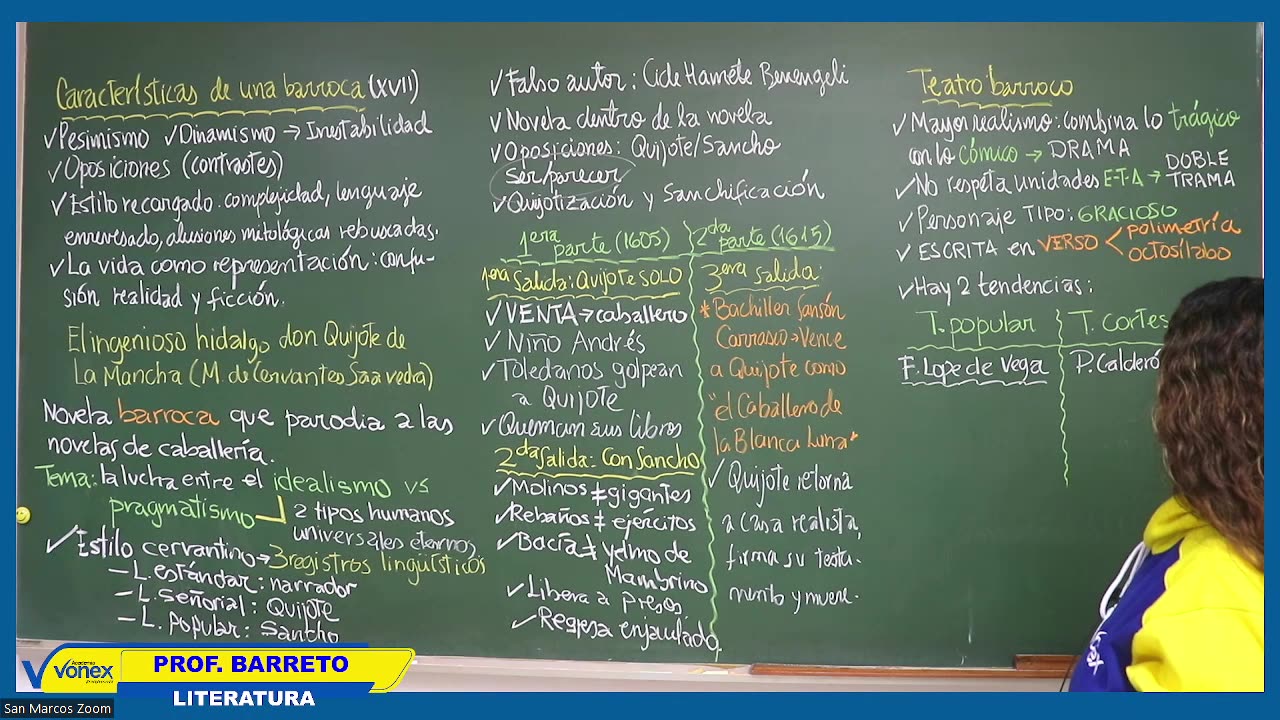 Características de una barroca (XVII)
✓ Pesimismo ✓ Dinamismo → Inestabilidad
✓ Oposiciones (contrastes)
✓ Estilo recargado: complejidad, lenguaje
enrevesado, alusiones mitológicas rebuscadas.
✓ La vida como representación: confu-
sión realidad y ficción.
El ingenioso hidalgo don Quijote de
La Mancha (M. de Cervantes Saavedra)
Novela barroca que parodia a las
novelas de caballería.
Tema: la lucha entre el idealismo vs
pragmatismo
2 tipos humanos
universales eternos
✓ Estilo cervantino → 3 registros lingüísticos
- L. estándar: narrador
- L. señorial: Quijote
- L. popular: Sancho
✓ Falso autor: Cide Hamete Benengeli
✓ Novela dentro de la novela
✓ Oposiciones: Quijote/Sancho
ser/parecer
✓ Quijotización y Sanchificación
1era parte (1605)
1era Salida: Quijote SOLO
✓ VENTA → caballero
✓ Niño Andrés
✓ Toledanos golpean
a Quijote
✓ Queman sus libros
2da Salida: Con Sancho
✓ Molinos ≠ gigantes
✓ Rebaños ≠ ejércitos
✓ Bacía ≠ yelmo de
Mambrino
✓ Libera a presos
✓ Regresa enjaulado
2da parte (1615)
3era salida:
* Bachiller Sansón
Carrasco → Vence
a Quijote como
"el Caballero de
la Blanca Luna"
✓ Quijote retorna
a casa realista,
firma su testa-
mento y muere.
Teatro barroco
✓ Mayor realismo: combina lo trágico
con lo cómico → DRAMA
✓ No respeta unidades E-T-A → DOBLE
TRAMA
✓ Personaje TIPO: GRACIOSO
✓ ESCRITA en VERSO < polimetría
octosílabo
✓ Hay 2 tendencias:
T. popular
F. Lope de Vega
T. Cortes
P. Calderó
Academia
Vonex
PROF. BARRETO
LITERATURA
San Marcos Zoom